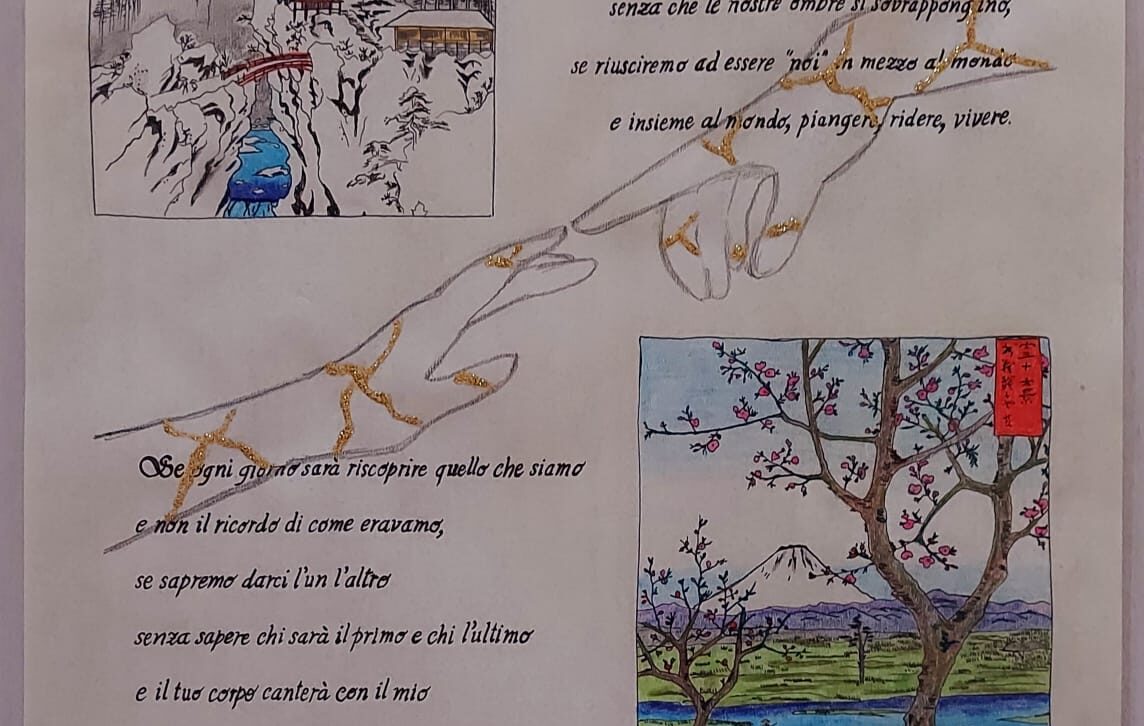 senza che le nostre ombre si sovrappongino,
se riusciremo ad essere "noi" in mezzo al mondo
e insieme al mondo, piangere, ridere, vivere.
Se ogni giorno sarà riscoprire quello che siamo
e non il ricordo di come eravamo,
se sapremo darci l'un l'altro
senza sapere chi sarà il primo e chi l'ultimo
e il tuo corpo canterà con il mio